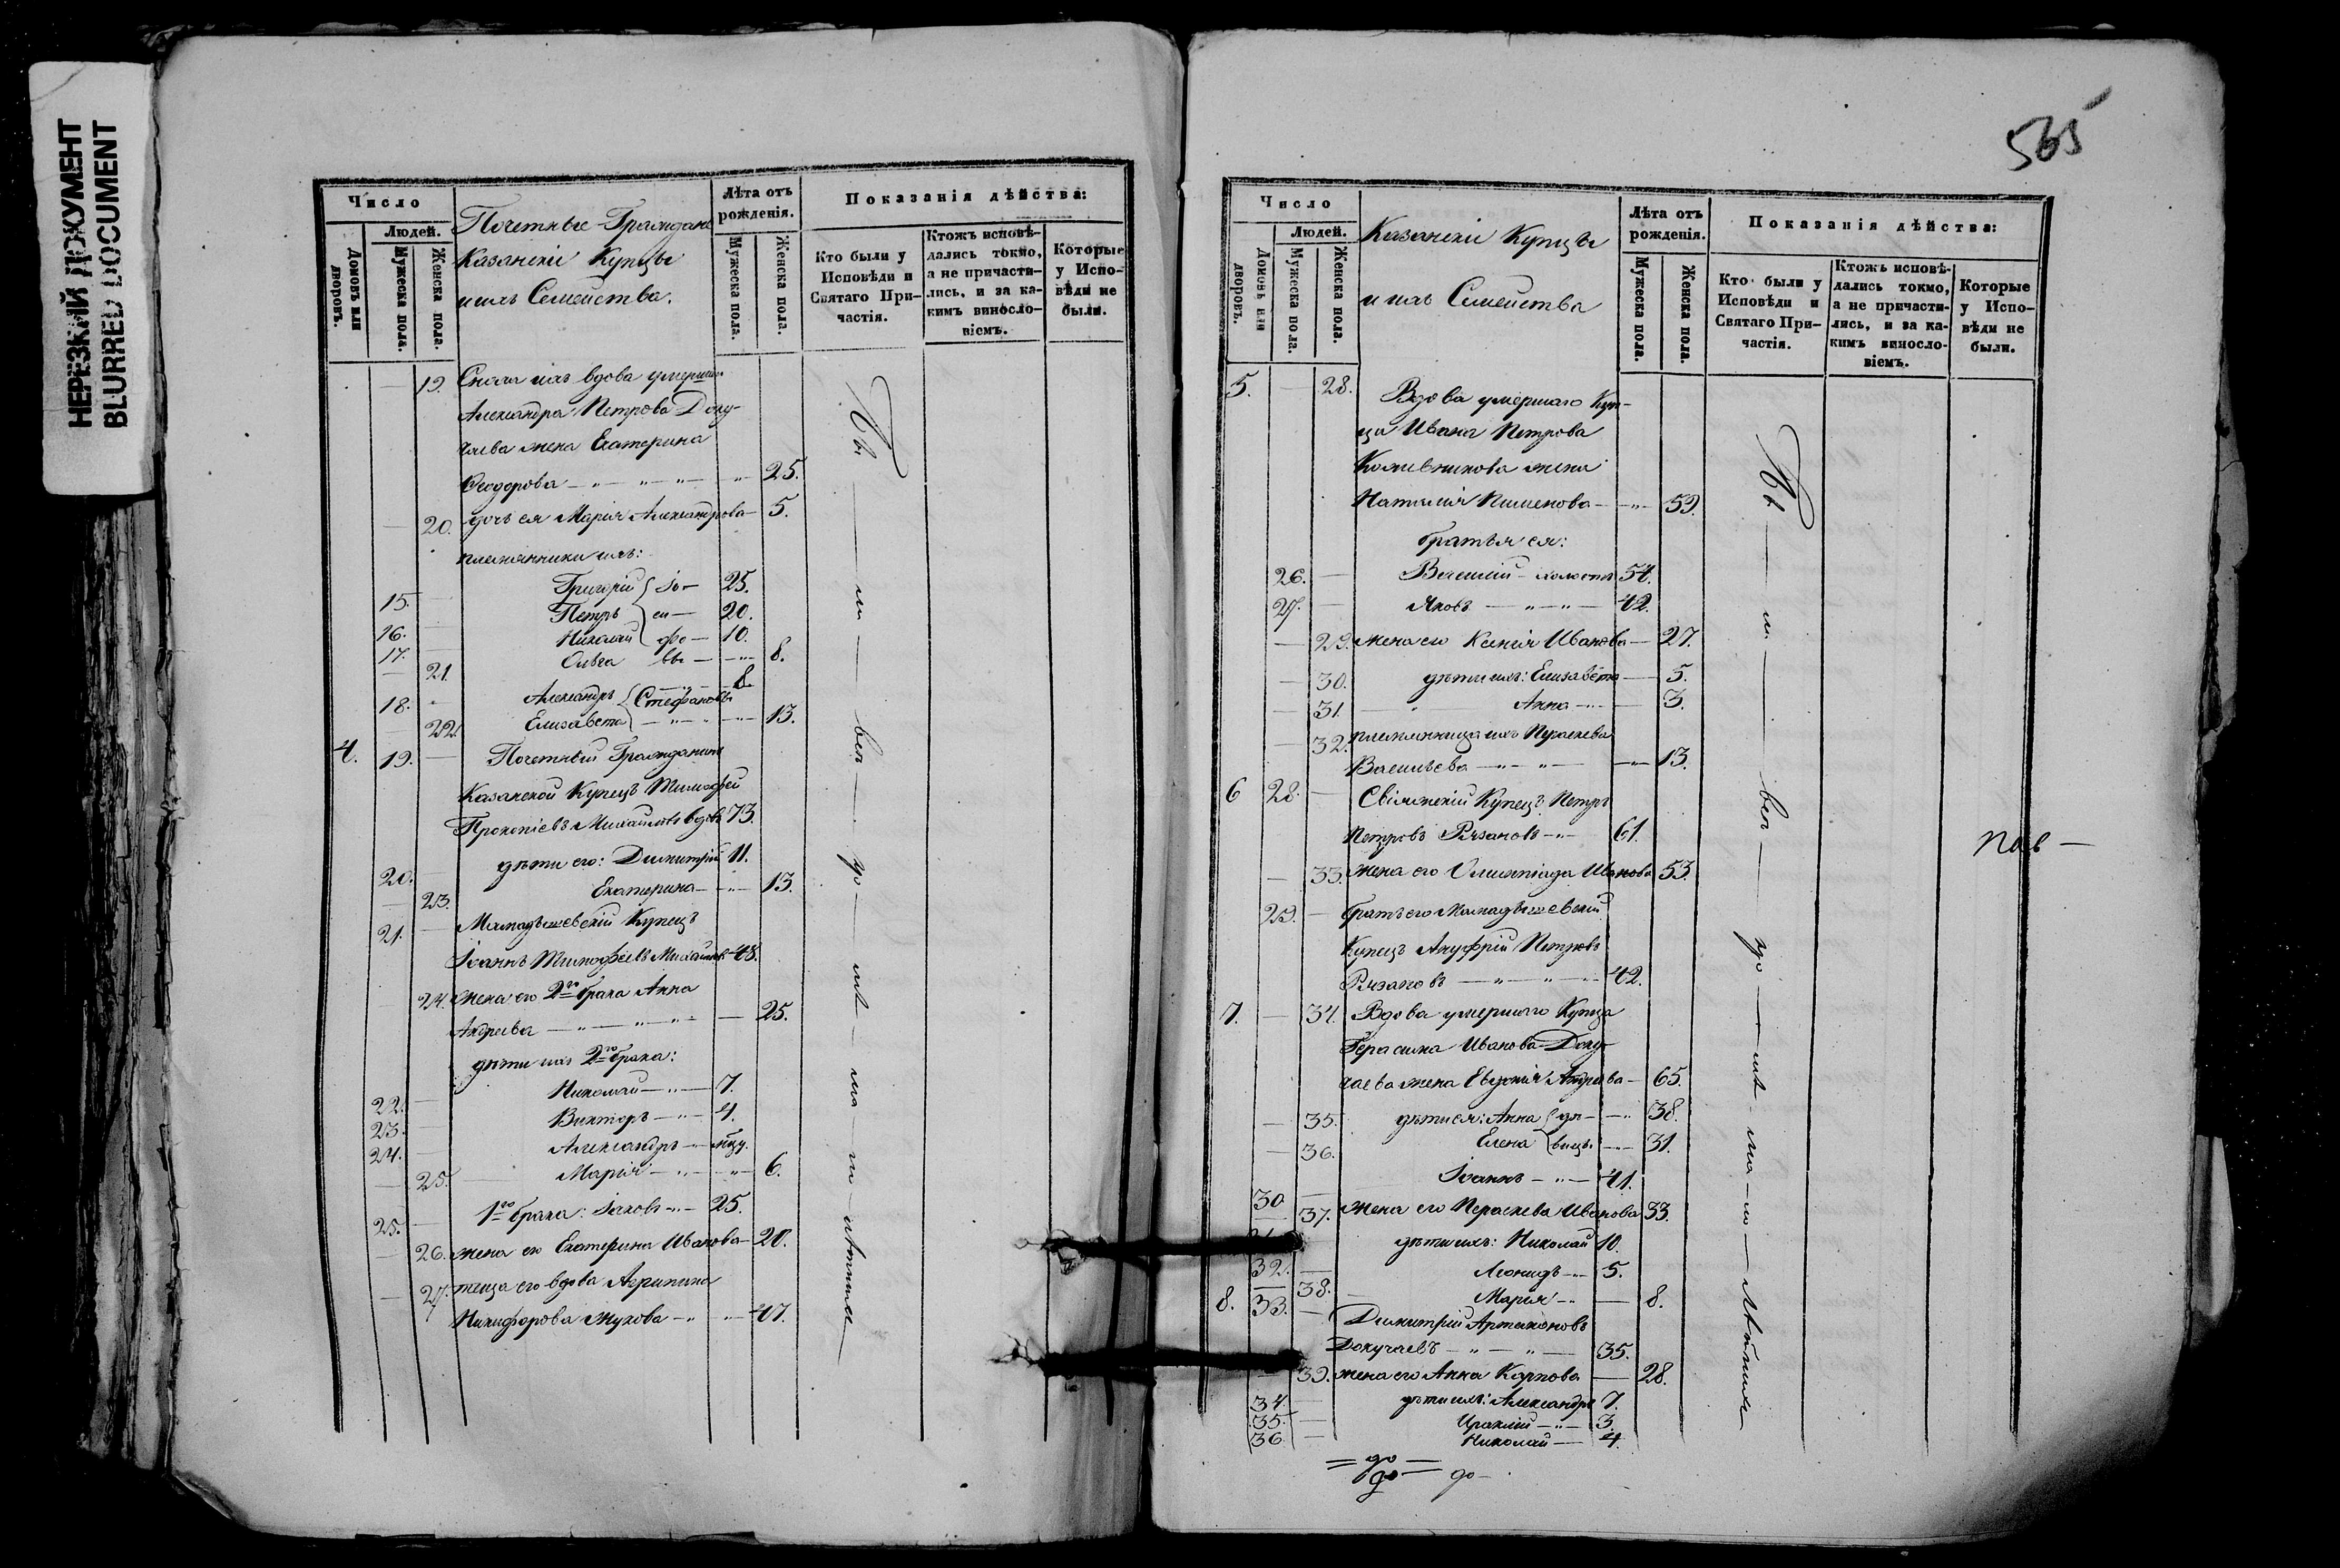 НЕРЕЗКИЙ ДОКУМЕНТ
BLURRED DOCUMENT
Число
Людей.
Домовъ или дворовъ.
Мужеска пола.
Женска пола.
Почетные Граждане
Казанскіи Купцы
и ихъ Семейства.
Лѣта отъ рожденія.
Мужеска пола.
Женска пола.
Показанія дѣйства:
Кто были у Исповѣди и Святаго Причастія.
Ктожъ исповѣдались токмо, а не причастились, и за какимъ винословіемъ.
Которые у Исповѣди не были.
— 19. Сноха ихъ вдова умершаго
Александра Петрова Доку-
чаева жена Екатерина
Феодорова — " — " — " — 25.
— 20. дочь ея Марія Александрова — 5.
племянники ихъ:
15. — Григорій 25.
16. — Петръ 20.
17. — Николай 10.
— 21. Ольга — " — 8.
18. — Александръ Стефановы 8.
— 22. Елисавета — " — " — 13.
4. 19. — Почетный Гражданинъ
Казанской Купецъ Тимофей
Прокопіевъ Михайловъ вдовъ 73.
20. — дѣти его: Димитрій 11.
— 23. Екатерина — " — 13.
21. — Мамадышевскій Купецъ
Іоаннъ Тимофѣевъ Михайловъ 48.
24. жена его 2го брака Анна
Андреева — " — " — " — 25.
дѣти ихъ 2го брака:
22. — Николай — " — 7.
23. — Викторъ — " — 4.
24. Александръ —
— 25. Марія — " — " — 6.
25. — 1го брака: Іаковъ — " — 25.
— 26. жена его Екатерина Иванова — 20.
— 27. теща его вдова Агрипина
Никифорова Жухова — " — " — 47.
Вы — ше — всѣ — до — лѣ — та — по — лѣтніи
565
Число
Людей.
Домовъ или дворовъ.
Мужеска пола.
Женска пола.
Казанскіи Купцы
и ихъ Семейства
Лѣта отъ рожденія.
Мужеска пола.
Женска пола.
Показанія дѣйства:
Кто были у Исповѣди и Святаго Причастія.
Ктожъ исповѣдались токмо, а не причастились, и за какимъ винословіемъ.
Которые у Исповѣди не были.
5. — 28. Вдова умершаго Куп-
ца Ивана Петрова
Кожевникова жена
Наталія Пименова — " — 59.
братья ея:
26. — Василій — холостъ 54.
27. — Яковъ — " — " — 42.
— 29. жена его Ксенія Иванова — 27.
— 30. дѣти ихъ: Елисавета — 5.
— 31. Анна — " — 3.
— 32. племянница ихъ Параскева
Васильева — " — " — 13.
6 28. — Свіяжскій Купецъ Петръ
Петровъ Рязановъ — " — 61.
— 33. жена его Олимпіада Иванова 53.
29. — братъ его Мамадышевскій
Купецъ Ануфрій Петровъ
Рязановъ — " — " — 42.
7. — 34. Вдова умершаго Купца
Герасима Иванова Доку-
чаева жена Евдокія Андреева — 65.
— 35. дѣти ея: Анна дѣ- — " 38.
— 36. Елена вицы — " — 31.
30 — Іоаннъ — " — 41.
— 37. жена его Параскева Иванова 33.
дѣти ихъ: Николай 10.
32. — Леонидъ — " 5.
— 38. Марія — " — 8.
8. 33. — Димитрій Артамоновъ
Докучаевъ — " — " — 35.
— 39. жена его Анна Карпова — 28.
34 — дѣти ихъ: Александръ 7.
35. — Ираклій — " — 3
36 — Николай — 4.